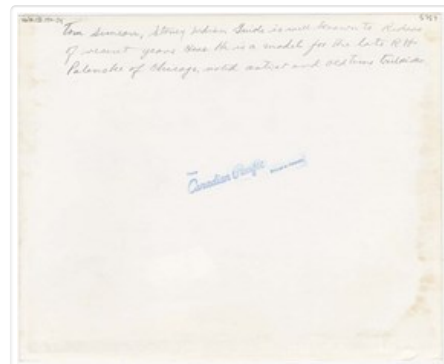 Tom Simeon, Stoney Indian Guide is well known to Riders
of recent years Here He is a model for the late R.H.
Palenske of Chicago, noted artist and old time Trailside
Canadian Pacific